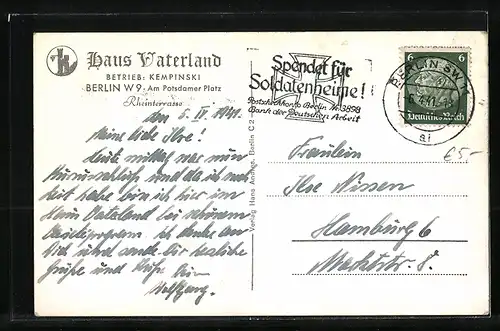 Haus Vaterland
BETRIEB: KEMPINSKI
BERLIN W 9, Am Potsdamer Platz
Rheinterrasse
Spendet für
Soldatenheime!
Postscheckkonto Berlin Nr. 3898
Bank der Deutschen Arbeit
6 6
Deutsches Reich
BERLIN SW
41
a i
€5-
den 5. IV 1941.
Meine liebe Ilse!
Heute mittag war nun
und da ich noch
Zeit habe bin ich hier im
Haus Vaterland bei schönem
Ich denke an
Dich und sende Dir herzliche
Grüße und Küsse Dein
Wolfgang.
Verlag Hans Andres, Berlin C 2
Fräulein
Ilse Nissen
Hamburg 6
8.